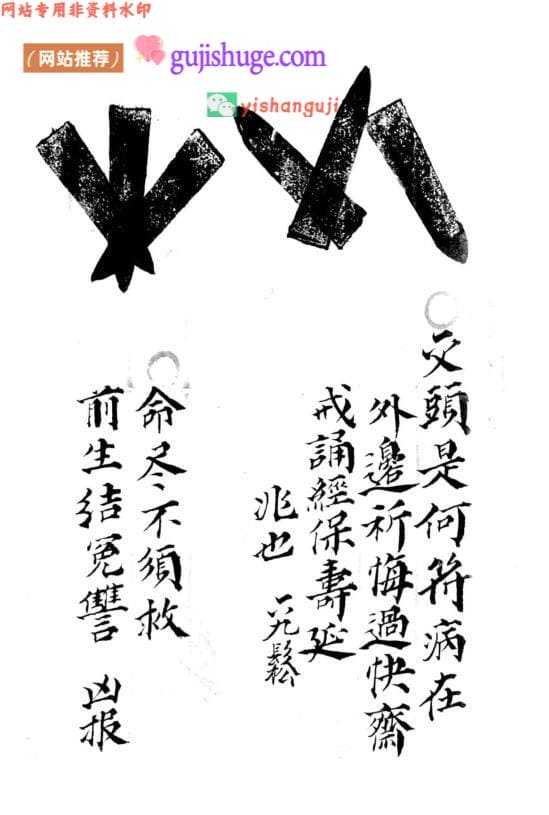 网站专用非资料水印
（网站推荐）
gujishuge.com
yishanguji
交頭是何符病在
外邊祈悔過快齋
戒誦經保壽延
兆也
鬆
命尽不須救
前生结冤讐 凶报